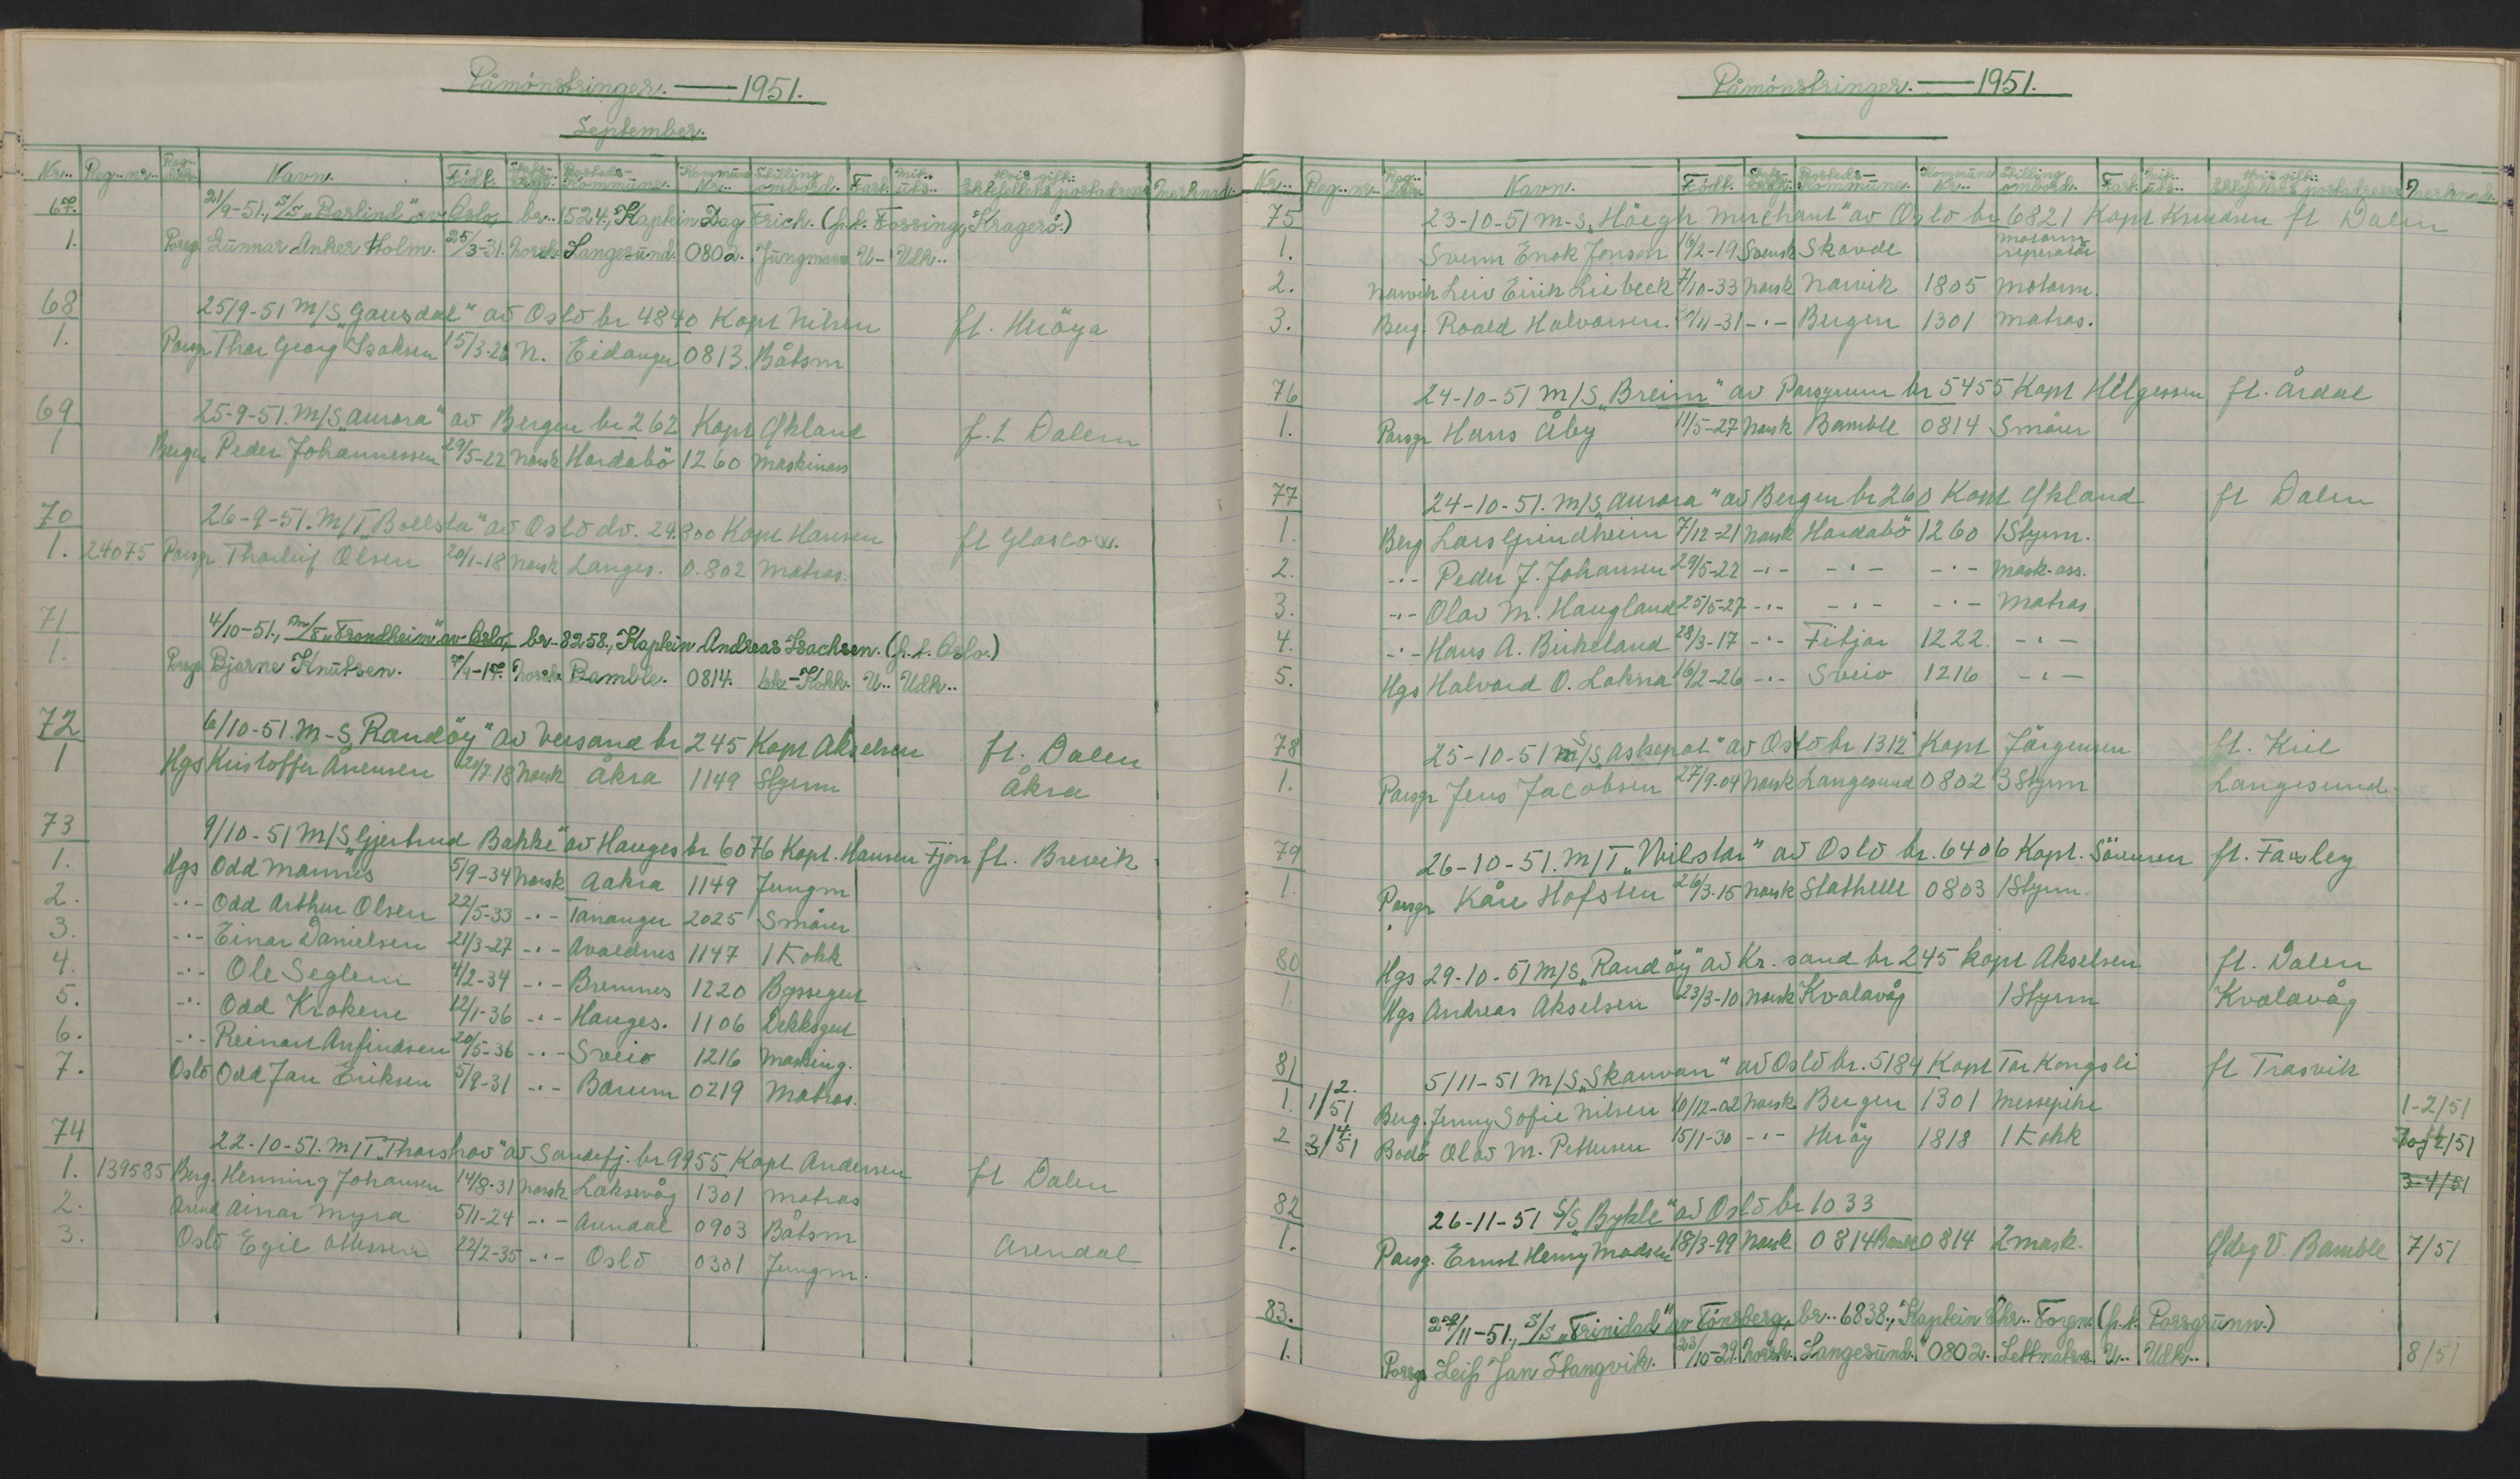 Påmönstringer. — 1951.
September.
Nr. Reg.-nr. Reg. Navn. Födt. Bosteds-Kommune. Kommune Nr. Stilling ombord. Fast. Mit. uts. Hvis gift: Ektefelles postadresse Merknad.
67. 21/9-51., S/S „Roslind" av Oslo, br. 1524., Kaptein Dag Erich. (p.t. Fossing, Kragerö.)
1. Porsg. Gunnar Anker Holm. 25/3-31. Norsk Langesund. 0802. Jungmann U- Udk..
68 25/9-51 M/S „Gausdal" av Oslo br 4840 Kapt Nilsen ft. Heröya
1. Porsgr Thor Georg Isaksen 15/3-26 N. Eidanger 0813. Båtsm
69 25-9-51. M/S „Aurora" av Bergen br 262 Kapt Økland f.t Dalen
1 Bergen Peder Johannessen 29/5-22 Norsk Hordabö 1260 Maskinass
70 26-9-51. M/T „Bollsta" av Oslo dv. 24.800 Kapt Hansen ft Glascow.
1. 24075 Porsgr Thorleif Olsen 20/1-18 Norsk Langes. 0.802 Matros.
71 4/10-51., M/S „Trondheim" av Oslo, br. 8258., Kaptein Andreas Isachsen. (p.t. Oslo.)
1. Porsgr Bjarne Knutsen. 7/9-17. Norsk Bamble. 0814. Kokk. U.. Udk..
72 6/10-51. M-S „Randöy" av Kr.sand br 245 Kapt Akselsen ft. Dalen
1 Hgs Kristoffer Svensen 20/7-18 Norsk Åkra 1149 Styrm Åkra
73 9/10-51 M/S „Gjertrud Bakke" av Hauges br 6076 Kapt. Hansen Fjon ft. Brevik
1. Hgs Odd Mannes 5/9-34 Norsk Aakra 1149 Jungm
2. -"- Odd Arthur Olsen 22/5-33 -"- Tananger 2025 Smörer
3. -"- Einar Danielsen 21/3-27 -"- Avaldnes 1147 1 Kokk
4. -"- Ole Seglem 4/2-34 -"- Bremnes 1220 Byssegut
5. -"- Odd Krokene 12/1-36 -"- Hauges. 1106 Dekksgut
6. -"- Reinart Anfindsen 20/5-36 -"- Sveio 1216 Masking.
7. Oslo Odd Jan Eriksen 5/9-31 -"- Bærum 0219 Matros.
74 22-10-51. M/T „Thorshov" av Sandefj. br 9955 Kapt Andersen ft Dalen
1. 139585 Berg. Henning Johansen 14/8-31 Norsk Laksevåg 1301 Matros
2. Arend Einar Myra 5/1-24 -"- Arendal 0903 Båtsm Arendal
3. Oslo Egil Ottessen 22/2-35 -"- Oslo 0301 Jungm.
Påmönstringer. — 1951.
Nr. Reg.-nr. Reg. Navn. Födt. Bosteds-Kommune. Kommune Nr. Stilling ombord. Fast. Mit. uts. Hvis gift: Ektefelles postadresse Merknad.
75 23-10-51 M-S „Höegh Merchant" av Oslo br 6821 Kapt Knudsen ft Dalen
1. Svenn Enok Jonson 16/2-19 Svensk Skövde motorm reperatör
2. Narvik Leiv Eirik Liebeck 7/10-33 Norsk Narvik 1805 Motorm.
3. Berg. Roald Halvorsen. /11-31 -"- Bergen 1301 Matros.
76 24-10-51 M/S „Breim" av Porsgrunn br 5455 Kapt Helgessen ft. Årdal
1. Porsgr Hans Åby 11/5-27 Norsk Bamble 0814 Smörer
77 24-10-51. M/S „Aurora" av Bergen br 260 Kapt Økland ft Dalen
1. Berg Lars Grindheim 7/12-21 Norsk Hordabö 1260 1 Styrm.
2. -"- Peder J. Johansen 29/5-22 -"- -"- -"- Mask.ass.
3. -"- Olav M. Haugland 25/5-27 -"- -"- -"- Matros
4. -"- Hans A. Birkeland 28/3-17 -"- Fitjar 1222. -"-
5. Hgs Halvard O. Lokna 16/2-26 -"- Sveio 1216 -"-
78 25-10-51 S/S „Askepot" av Oslo br 1312 Kapt Jörgensen ft. Kiel
1. Porsgr Jens Jacobsen 27/9-04 Norsk Langesund 0802 3 Styrm Langesund.
79 26-10-51. M/T „Vilstar" av Oslo br. 6406 Kapt. Sörensen ft. Fawley
1. Porsgr Kåre Hofsten 26/3-15 Norsk Stathelle 0803 1 Styrm.
80 Hgs 29-10-51 M/S „Randöy" av Kr.sand br 245 Kapt Akselsen ft. Dalen
1 Hgs Andreas Akselsen 23/3-10 Norsk Kvalavåg 1 Styrm Kvalavåg
81 5/11-51 M/S „Skauvan" av Oslo br. 5184 Kapt Tor Kongsli ft Trosvik
1. 1/2. 51 Berg. Jenny Sofie Nilsen 10/12-02 Norsk Bergen 1301 Messepike 1-2/51
2 3/4. 51 Bodö Olav M. Pettersen 15/1-30 -"- Heröy 1818 1 Kokk
3-4/51
82 26-11-51 S/S „Bykle" av Oslo br 1033
1. Porsg. Ernst Henry Madsen 18/3-99 Norsk 0814 Bamble 0814 2 mask. Ødeg V. Bamble 7/51
83. 27/11-51., S/S „Trinidad" av Tönsberg, br.. 6838., Kaptein Chr.. Torgn. (p.t. Porsgrunn.)
1. Porsgr Leif Jan Stangvik. 23/10-29. Norsk. Langesund. 0802. Lettmatros U.. Udk.. 8/51